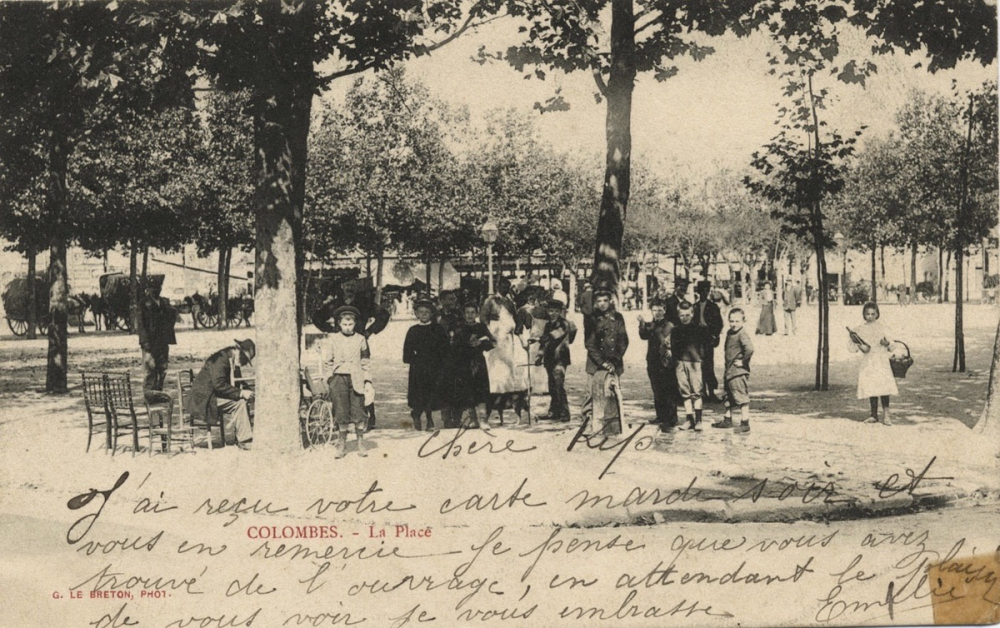 Chère Kip
J'ai reçu votre carte mardi soir et
COLOMBES. - La Place
vous en remercie Je pense que vous avez
trouvé de l'ouvrage, en attendant le plaisir
G. LE BRETON, PHOT.
de vous voir je vous embrasse
Emélie